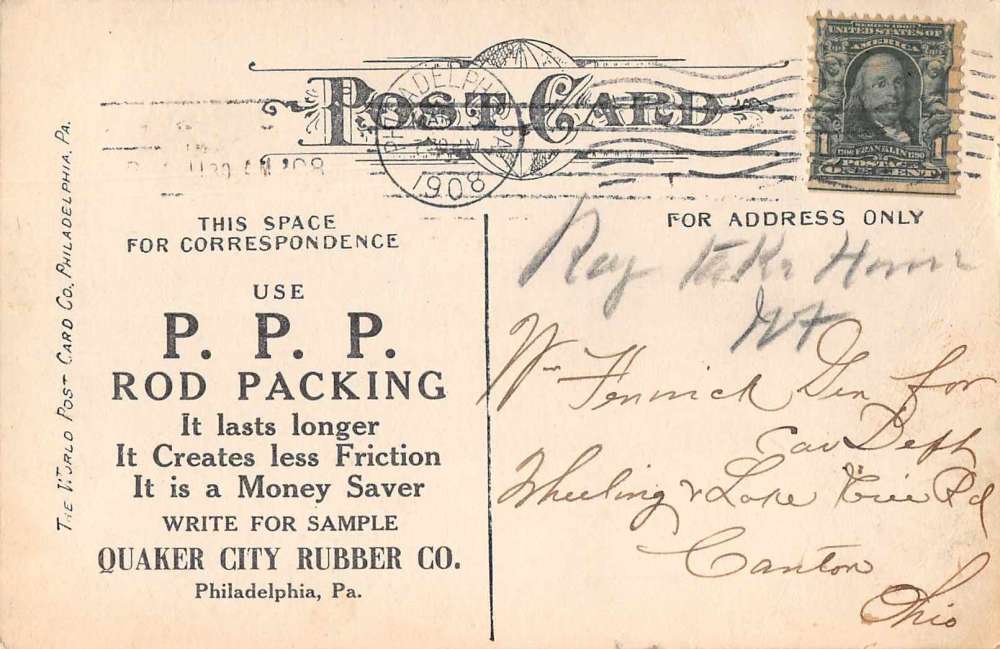 POST CARD
SERIES 1902
UNITED STATES OF
AMERICA
1706 FRANKLIN 1790
1 POSTAGE 1
ONE CENT
PHILADELPHIA PA
1908
THE WORLD POST CARD CO. PHILADELPHIA. PA.
THIS SPACE
FOR CORRESPONDENCE
USE
P. P. P.
ROD PACKING
It lasts longer
It Creates less Friction
It is a Money Saver
WRITE FOR SAMPLE
QUAKER CITY RUBBER CO.
Philadelphia, Pa.
FOR ADDRESS ONLY
Ray take Home
Wm Fenwick Gen for
Car Dept
Wheeling & Lake Erie Rd
Canton
Ohio